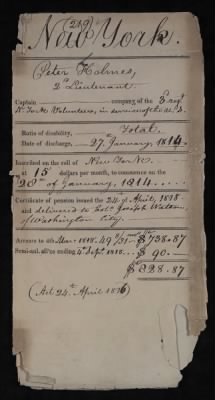 219
New York.
Peter Holmes,
2d Lieutenant
Captain company of the Regt
N. York Volunteers, in service of the U.S.
Ratio of disability, Total.
Date of discharge, 27th January, 1814.
Inscribed on the roll of New York.
at 15 dollars per month, to commence on the
28th of January, 1814.
Certificate of pension issued the 24th of April, 1818
and delivered to Joseph Watson,
of Washington City.
Arrears to 4th Mar. 1818. $738.87
Semi-anl. all'ce ending 4th Septr. 1818. $90.
$828.87
(Act 24th April 1816)